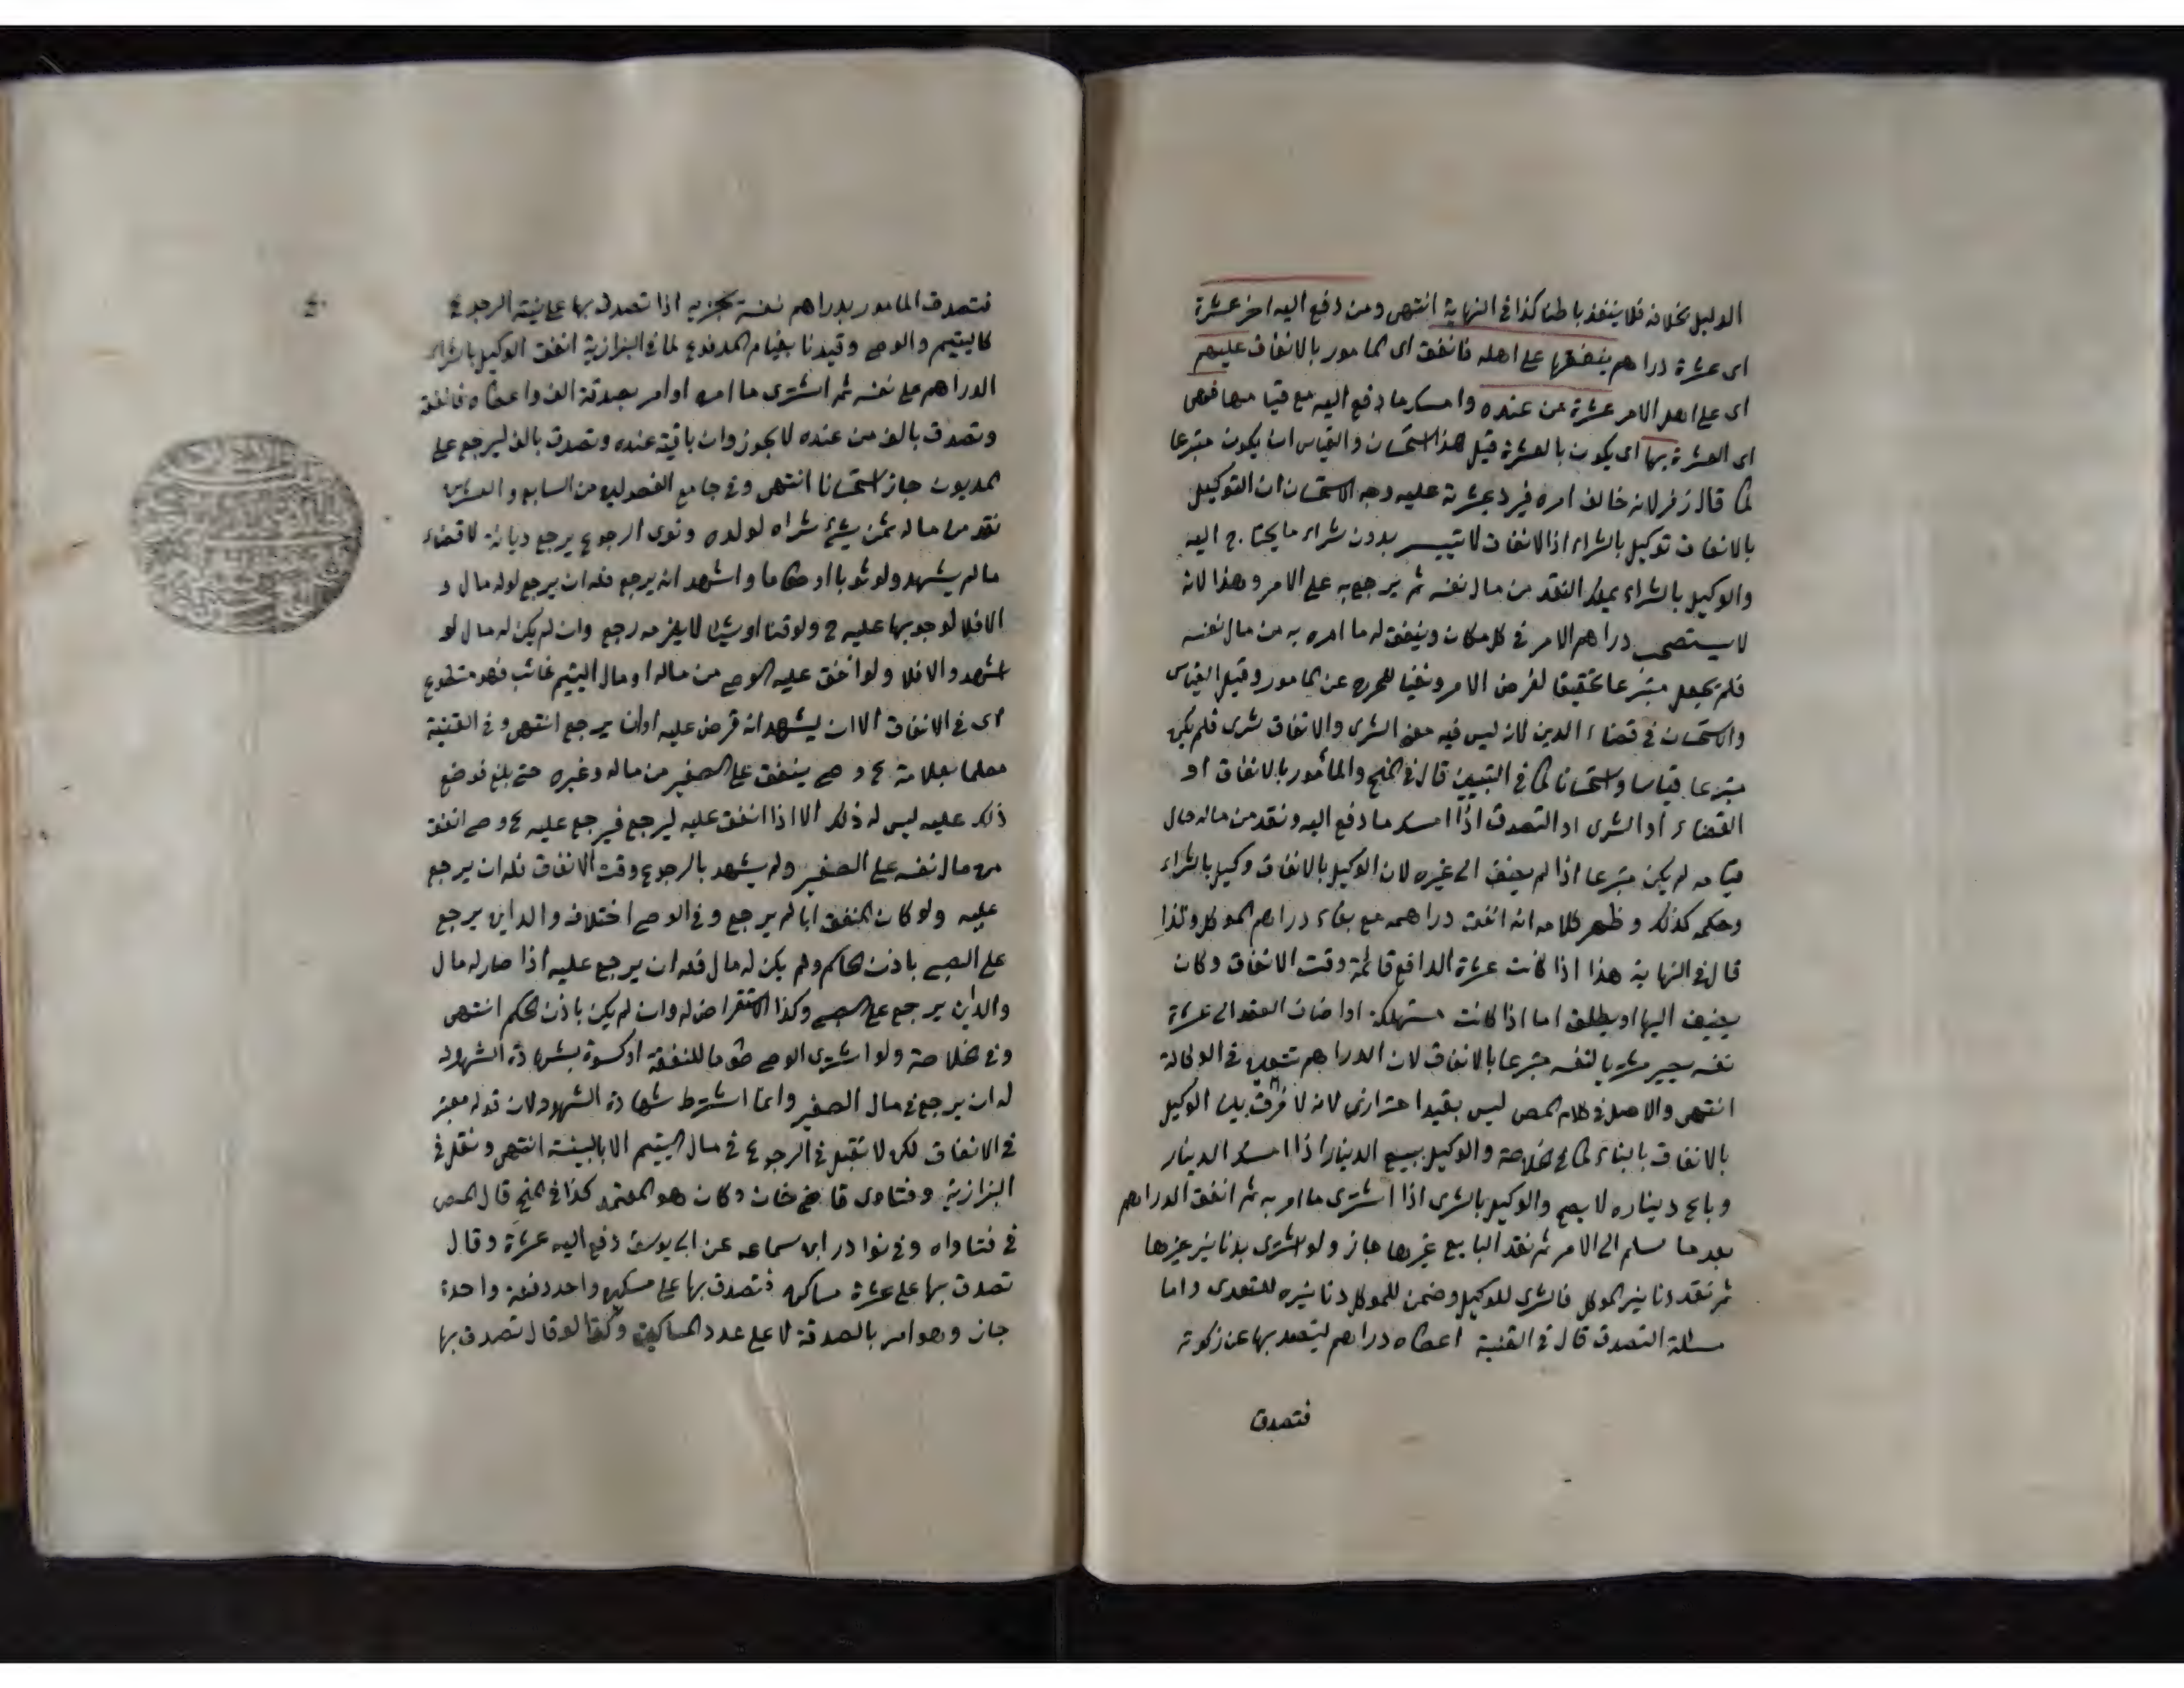 الدليل بخلافه فلا ينفذ باطنا كذا في النهاية انتهى ومن دفع اليه اخر عشرة
اى عشرة دراهم ينفقها على اهله فانفق اى المامور بالانفاق عليهم
اى على اهل الامر عشرة من عنده وامسك ما دفع اليه مع قيامها فهى
اى العشرة بها اى يكون بالعشرة قيل هذا استحسان والقياس ان يكون متبرعا
كما قال زفر لانه خالف امره فيرد عشرته عليه وجه الاستحسان ان التوكيل
بالانفاق توكيل بالشراء اذ الانفاق لا تيسر بدون شراء ما يحتاج اليه
والوكيل بالشراء يملك النقد من مال نفسه ثم يرجع به على الامر وهذا لانه
لا يستصحب دراهم الامر فى كل مكان وينفق له ما امره به من مال نفسه
فلم يجعل متبرعا تحقيقا لغرض الامر ونفيا للحرج عن المامور وقيل القياس
والاستحسان فى قضاء الدين لانه ليس فيه معنى الشرى والانفاق شرى فلم يكن
متبرعا قياسا واستحسانا كما فى التبيين قال فى المنح والمأمور بالانفاق او
القضاء او الشرى او التصدق اذا امسك ما دفع اليه ونقد من ماله حال
قيامه لم يكن متبرعا اذا لم يضف الى غيره لان الوكيل بالانفاق وكيل بالشراء
وحكمه كذلك وظهر كلامه انه انفق دراهمه مع بقاء دراهم الموكل ولذا
قال فى النهاية هذا اذا كانت عشرة الدافع قائمة وقت الانفاق وكان
يضيف اليها او يطلق اما اذا كانت مستهلكة او اضاف العقد الى عشرة
نفسه يصير مشتريا لنفسه متبرعا بالانفاق لان الدراهم تتعين فى الوكالة
انتهى والاهل فى كلام المص ليس بقيد احترازى لانه لا فرق بين الوكيل
بالانفاق بالبناء كما فى الخلاصة والوكيل ببيع الدينار اذا امسك الدينار
وباع ديناره لا يصح والوكيل بالشرى اذا اشترى ما امر به ثم انفق الدراهم
بعد ما سلم الى الامر ثم نقد البايع غيرها جاز ولو اشترى بدنانير غيرها
ثم نقد دنانير الموكل فالشرى للوكيل وضمن للموكل دنانيره للتعدى واما
مسئلة التصدق قال فى القنية اعطاه دراهم ليتصدق بها عن زكوته
فتصدق
فتصدق المامور بدراهم نفسه يجزيه اذا تصدق بها على نية الرجوع
كاليتيم والوصى وقيدنا بقيام المدفوع لما فى البزازية انفق الوكيل بالشراء
الدراهم على نفسه ثم اشترى ما امره او امر بصدقة الف واعطاه فانفقه
وتصدق بالف من عنده لا يجوز وان باقية عنده وتصدق بالف ليرجع على
المديون جاز استحسانا انتهى وفى جامع الفصولين من السابع والعشرين
نقد من ماله ثمن شئ شراه لولده ونوى الرجوع يرجع ديانة لا قضاء
ما لم يشهد ولو ثوبا او طعاما واشهد انه يرجع فله ان يرجع لو له مال و
الا فلا لوجوبها عليه ح ولو قنا او شيئا لا يلزمه رجع وان لم يكن له مال لو
اشهد والا فلا ولو انفق عليه الوصى من ماله او مال اليتيم غائب فهو متطوع
اى فى الانفاق الا ان يشهد انه قرض عليه او ان يرجع انتهى وفى القنية
معلما بعلامة وصى ينفق على الصغير من ماله وغيره حتى بلغ فوضع
ذلك عليه ليس له ذلك الا اذا انفق عليه ليرجع فيرجع عليه وصى انفق
من مال نفسه على الصغير ولم يشهد بالرجوع وقت الانفاق فله ان يرجع
عليه ولو كان المنفق ابا لم يرجع وفى الوصى اختلاف والداين يرجع
على الصبى باذن الحاكم ولم يكن له مال فله ان يرجع عليه اذا صار له مال
والداين يرجع على الصبى وكذا استقراض له وان لم يكن باذن الحاكم انتهى
وفى الخلاصة ولو اشترى الوصى طعوما للنفقة او كسوة بشهادة الشهود
له ان يرجع فى مال الصغير وانما اشترط شهادة الشهود لان قوله معتبر
فى الانفاق لكن لا تقبل فى الرجوع فى مال اليتيم الا بالبينة انتهى ونقل فى
البزازية وفتاوى قاضى خان وكان هو المعتمد كذا فى المنح قال المص
فى فتاواه وفى نوادر ابن سماعه عن ابى يوسف دفع اليه عشرة وقال
تصدق بها على عشرة مساكين فتصدق بها على مسكين واحد دفعة واحدة
جاز وهو امر بالصدقة لا على عدد المساكين وكذا لو قال تصدق بها